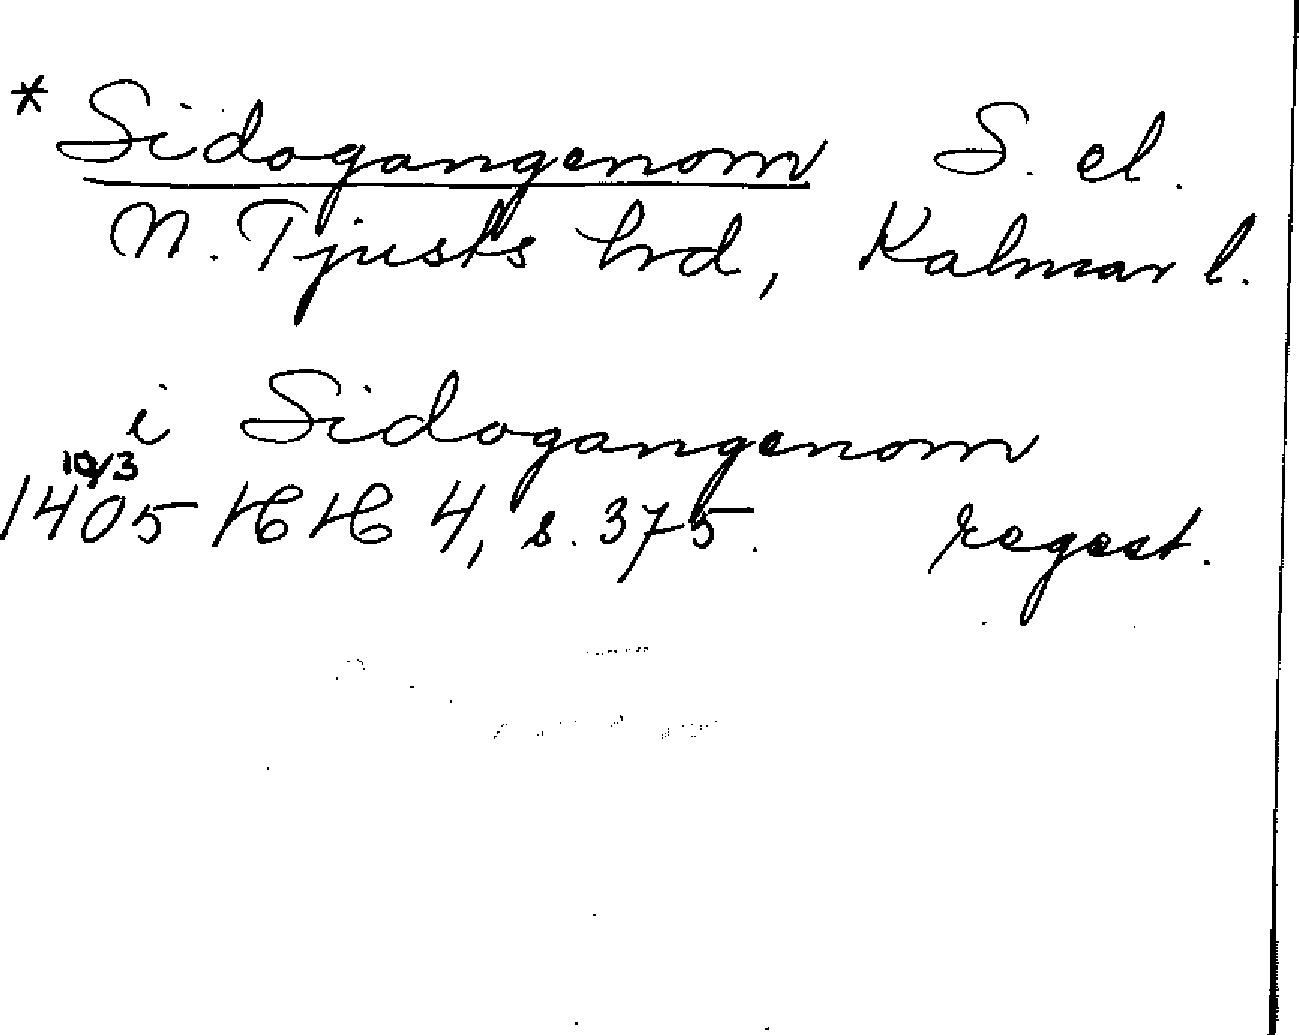 * Sidogangenom S. el.
N. Tjusts hrd, Kalmar l.
i Sidogangenom
10/3
1405 HH 4, s. 375. regest.